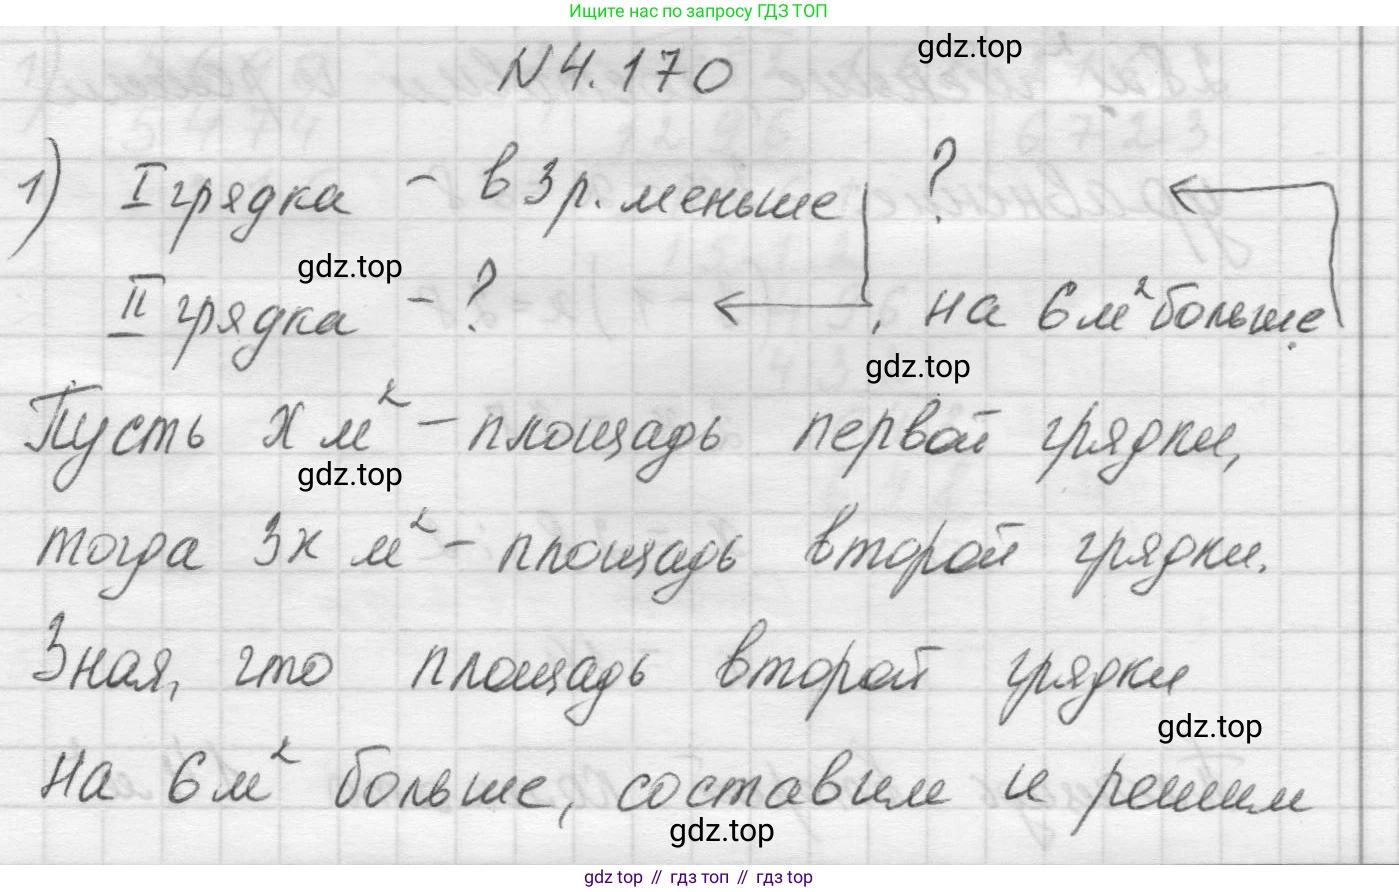 Ищите нас по запросу ГДЗ ТОП
gdz.top
N 4.170
1) I грядка - в 3 р. меньше ?
gdz.top
II грядка - ? , на 6 м² больше
gdz.top
Пусть x м² - площадь первой грядки,
gdz.top
тогда 3x м² - площадь второй грядки.
Зная, что площадь второй грядки
gdz.top
на 6 м² больше, составим и решим
gdz.top
gdz top // гдз топ // gdz top